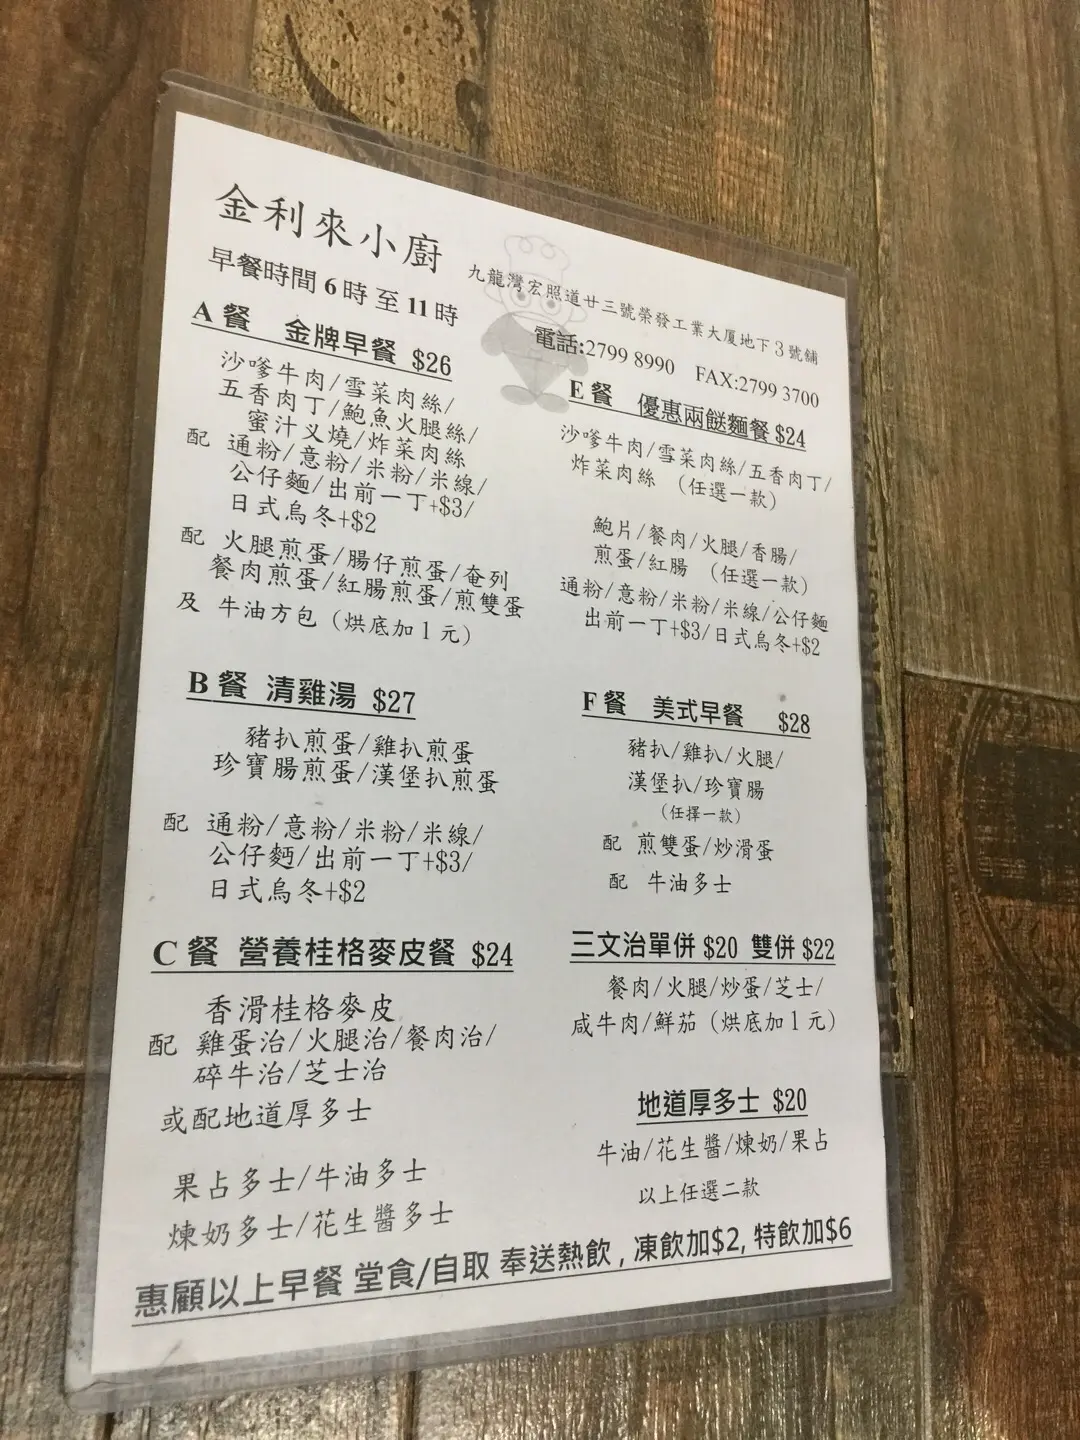 金利來小廚
早餐時間 6 時 至 11 時
九龍灣宏照道廿三號榮發工業大厦地下 3 號舖
電話:2799 8990 FAX:2799 3700
A 餐 金牌早餐 $26
沙嗲牛肉/雪菜肉絲/
五香肉丁/鮑魚火腿絲/
蜜汁义燒/炸菜肉絲
配 通粉/意粉/米粉/米線/
公仔麵/出前一丁+$3/
日式烏冬+$2
配 火腿煎蛋/腸仔煎蛋/奄列
餐肉煎蛋/紅腸煎蛋/煎雙蛋
及 牛油方包（烘底加 1 元）
B 餐 清雞湯 $27
豬扒煎蛋/雞扒煎蛋
珍寶腸煎蛋/漢堡扒煎蛋
配 通粉/意粉/米粉/米線/
公仔麪/出前一丁+$3/
日式烏冬+$2
C 餐 營養桂格麥皮餐 $24
香滑桂格麥皮
配 雞蛋治/火腿治/餐肉治/
碎牛治/芝士治
或配地道厚多士
果占多士/牛油多士
煉奶多士/花生醬多士
E 餐 優惠兩餸麵餐 $24
沙嗲牛肉/雪菜肉絲/五香肉丁/
炸菜肉絲 （任選一款）
鮑片/餐肉/火腿/香腸/
煎蛋/紅腸 （任選一款）
通粉/意粉/米粉/米線/公仔麵
出前一丁+$3/日式烏冬+$2
F 餐 美式早餐 $28
豬扒/雞扒/火腿/
漢堡扒/珍寶腸
（任擇一款）
配 煎雙蛋/炒滑蛋
配 牛油多士
三文治單併 $20 雙併 $22
餐肉/火腿/炒蛋/芝士/
咸牛肉/鮮茄（烘底加 1 元）
地道厚多士 $20
牛油/花生醬/煉奶/果占
以上任選二款
惠顧以上早餐 堂食/自取 奉送熱飲 , 凍飲加$2, 特飲加$6